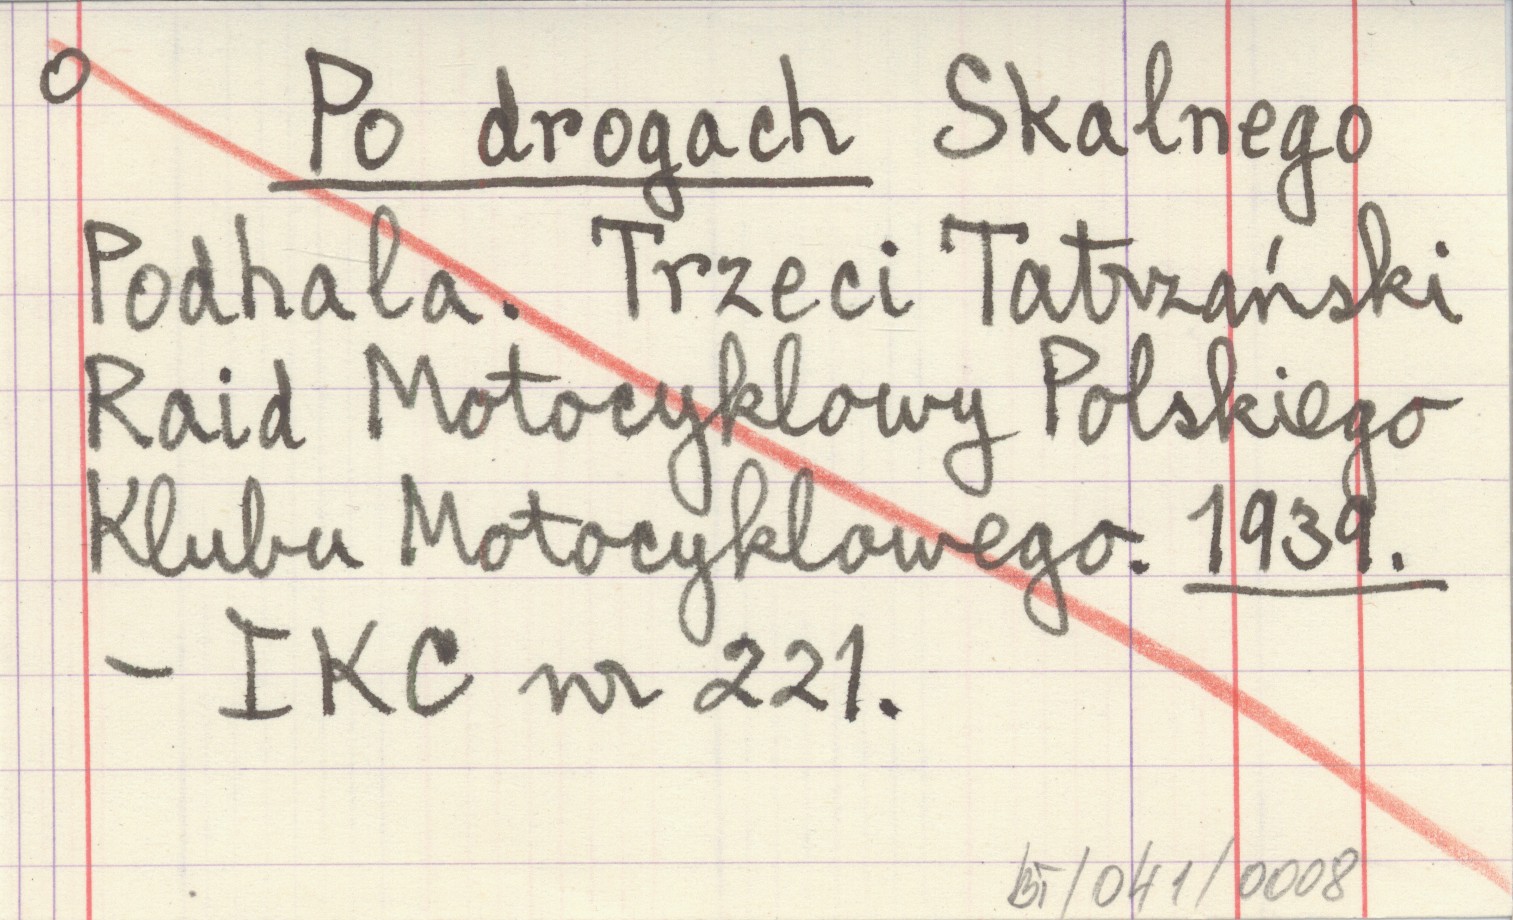 o Po drogach Skalnego
Podhala. Trzeci Tatrzański
Raid Motocyklowy Polskiego
Klubu Motocyklowego. 1939.
- IKC nr 221.
BT/041/0008